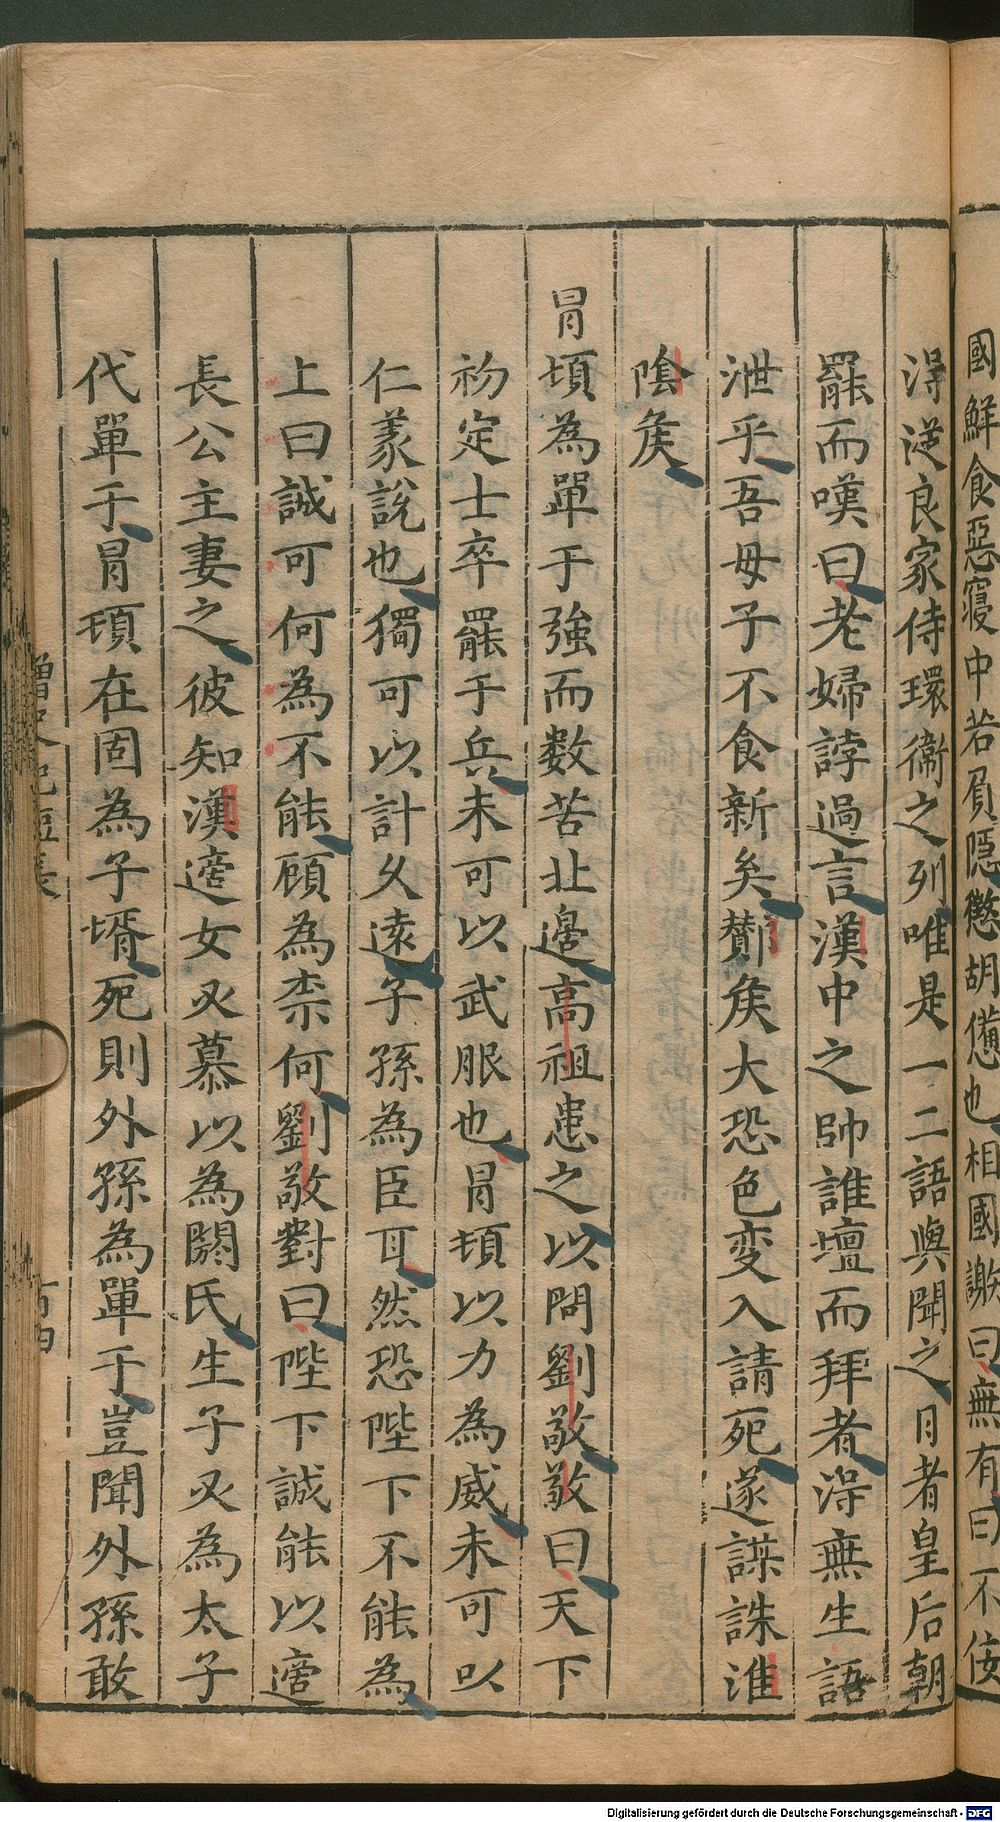 國鮮食惡寢中若屓隠懲胡憊也相國謝曰無有曰不佞
淂從良家侍環衞之列唯是一二語與聞之日者皇后朝
罷而嘆曰老婦誖過言漢中之帥誰壇而拜者淂無生語
泄乎吾母子不食新矣酇矦大恐色変入請死遂謀誅淮
隂矦
冒頓為單于強而数苦北邊高祖患之以問劉敬敬曰天下
初定士卒罷于兵未可以武服也冒頓以力為威未可以
仁義說也獨可以計久遠子孫為臣耳然恐陛下不能為
上曰誠可何為不能顧為柰何劉敬對曰陛下誠能以適
長公主妻之彼知漢適女又慕以為閼氏生子又為太子
代單于冒頓在固為子壻死則外孫為單于豈聞外孫敢
Digitalisierung gefördert durch die Deutsche Forschungsgemeinschaft - DFG